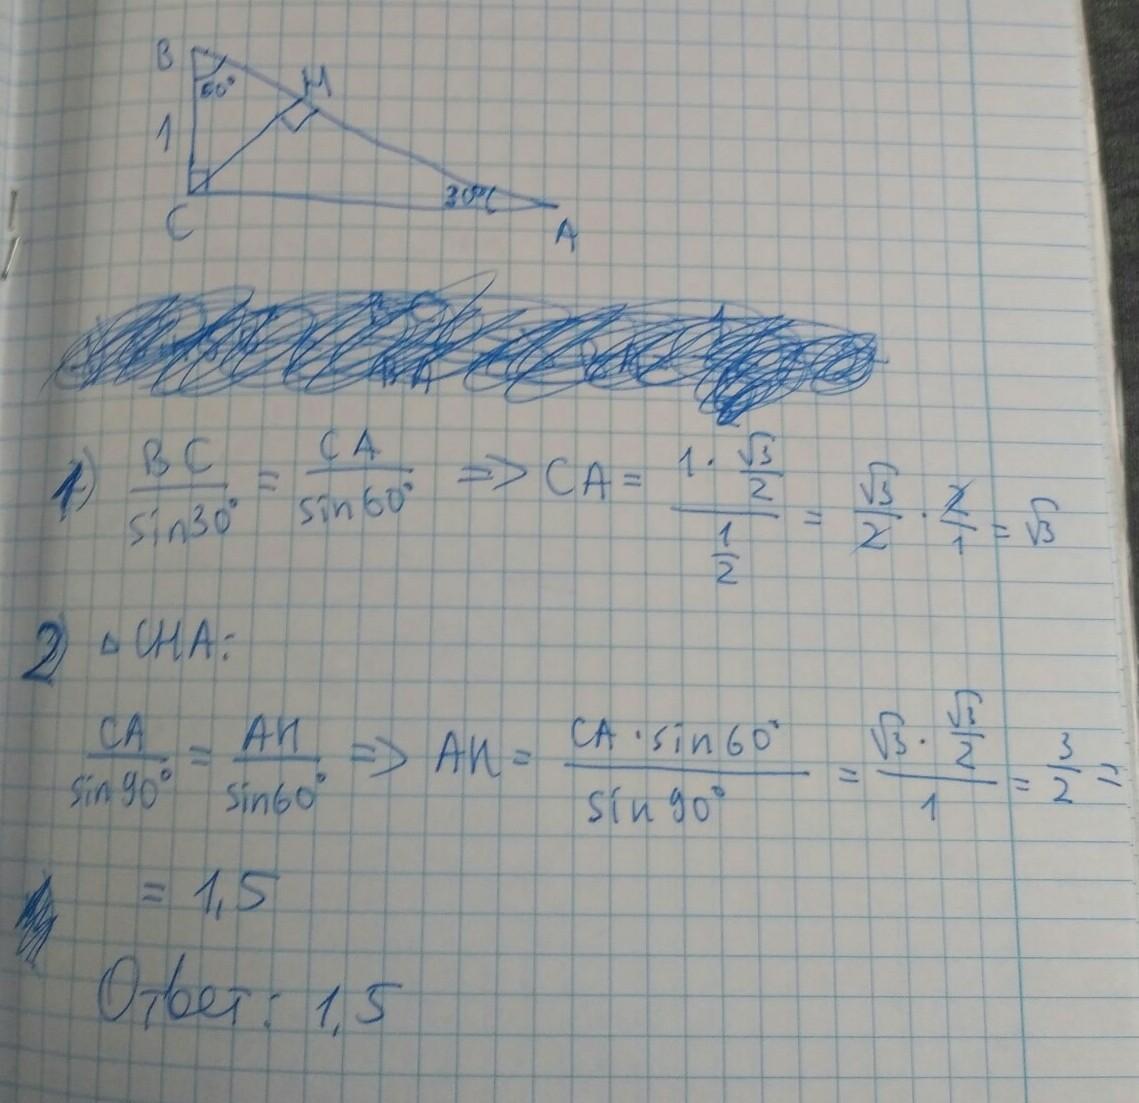 B
60°
H
1
C
30°
A
1) BC/sin30° = CA/sin60° => CA = (1·√3/2)/(1/2) = √3/2 · 2/1 = √3
2) ▵ CHA:
CA/sin90° = AH/sin60° => AH = CA·sin60°/sin90° = (√3·√3/2)/1 = 3/2 =
= 1,5
Ответ: 1,5